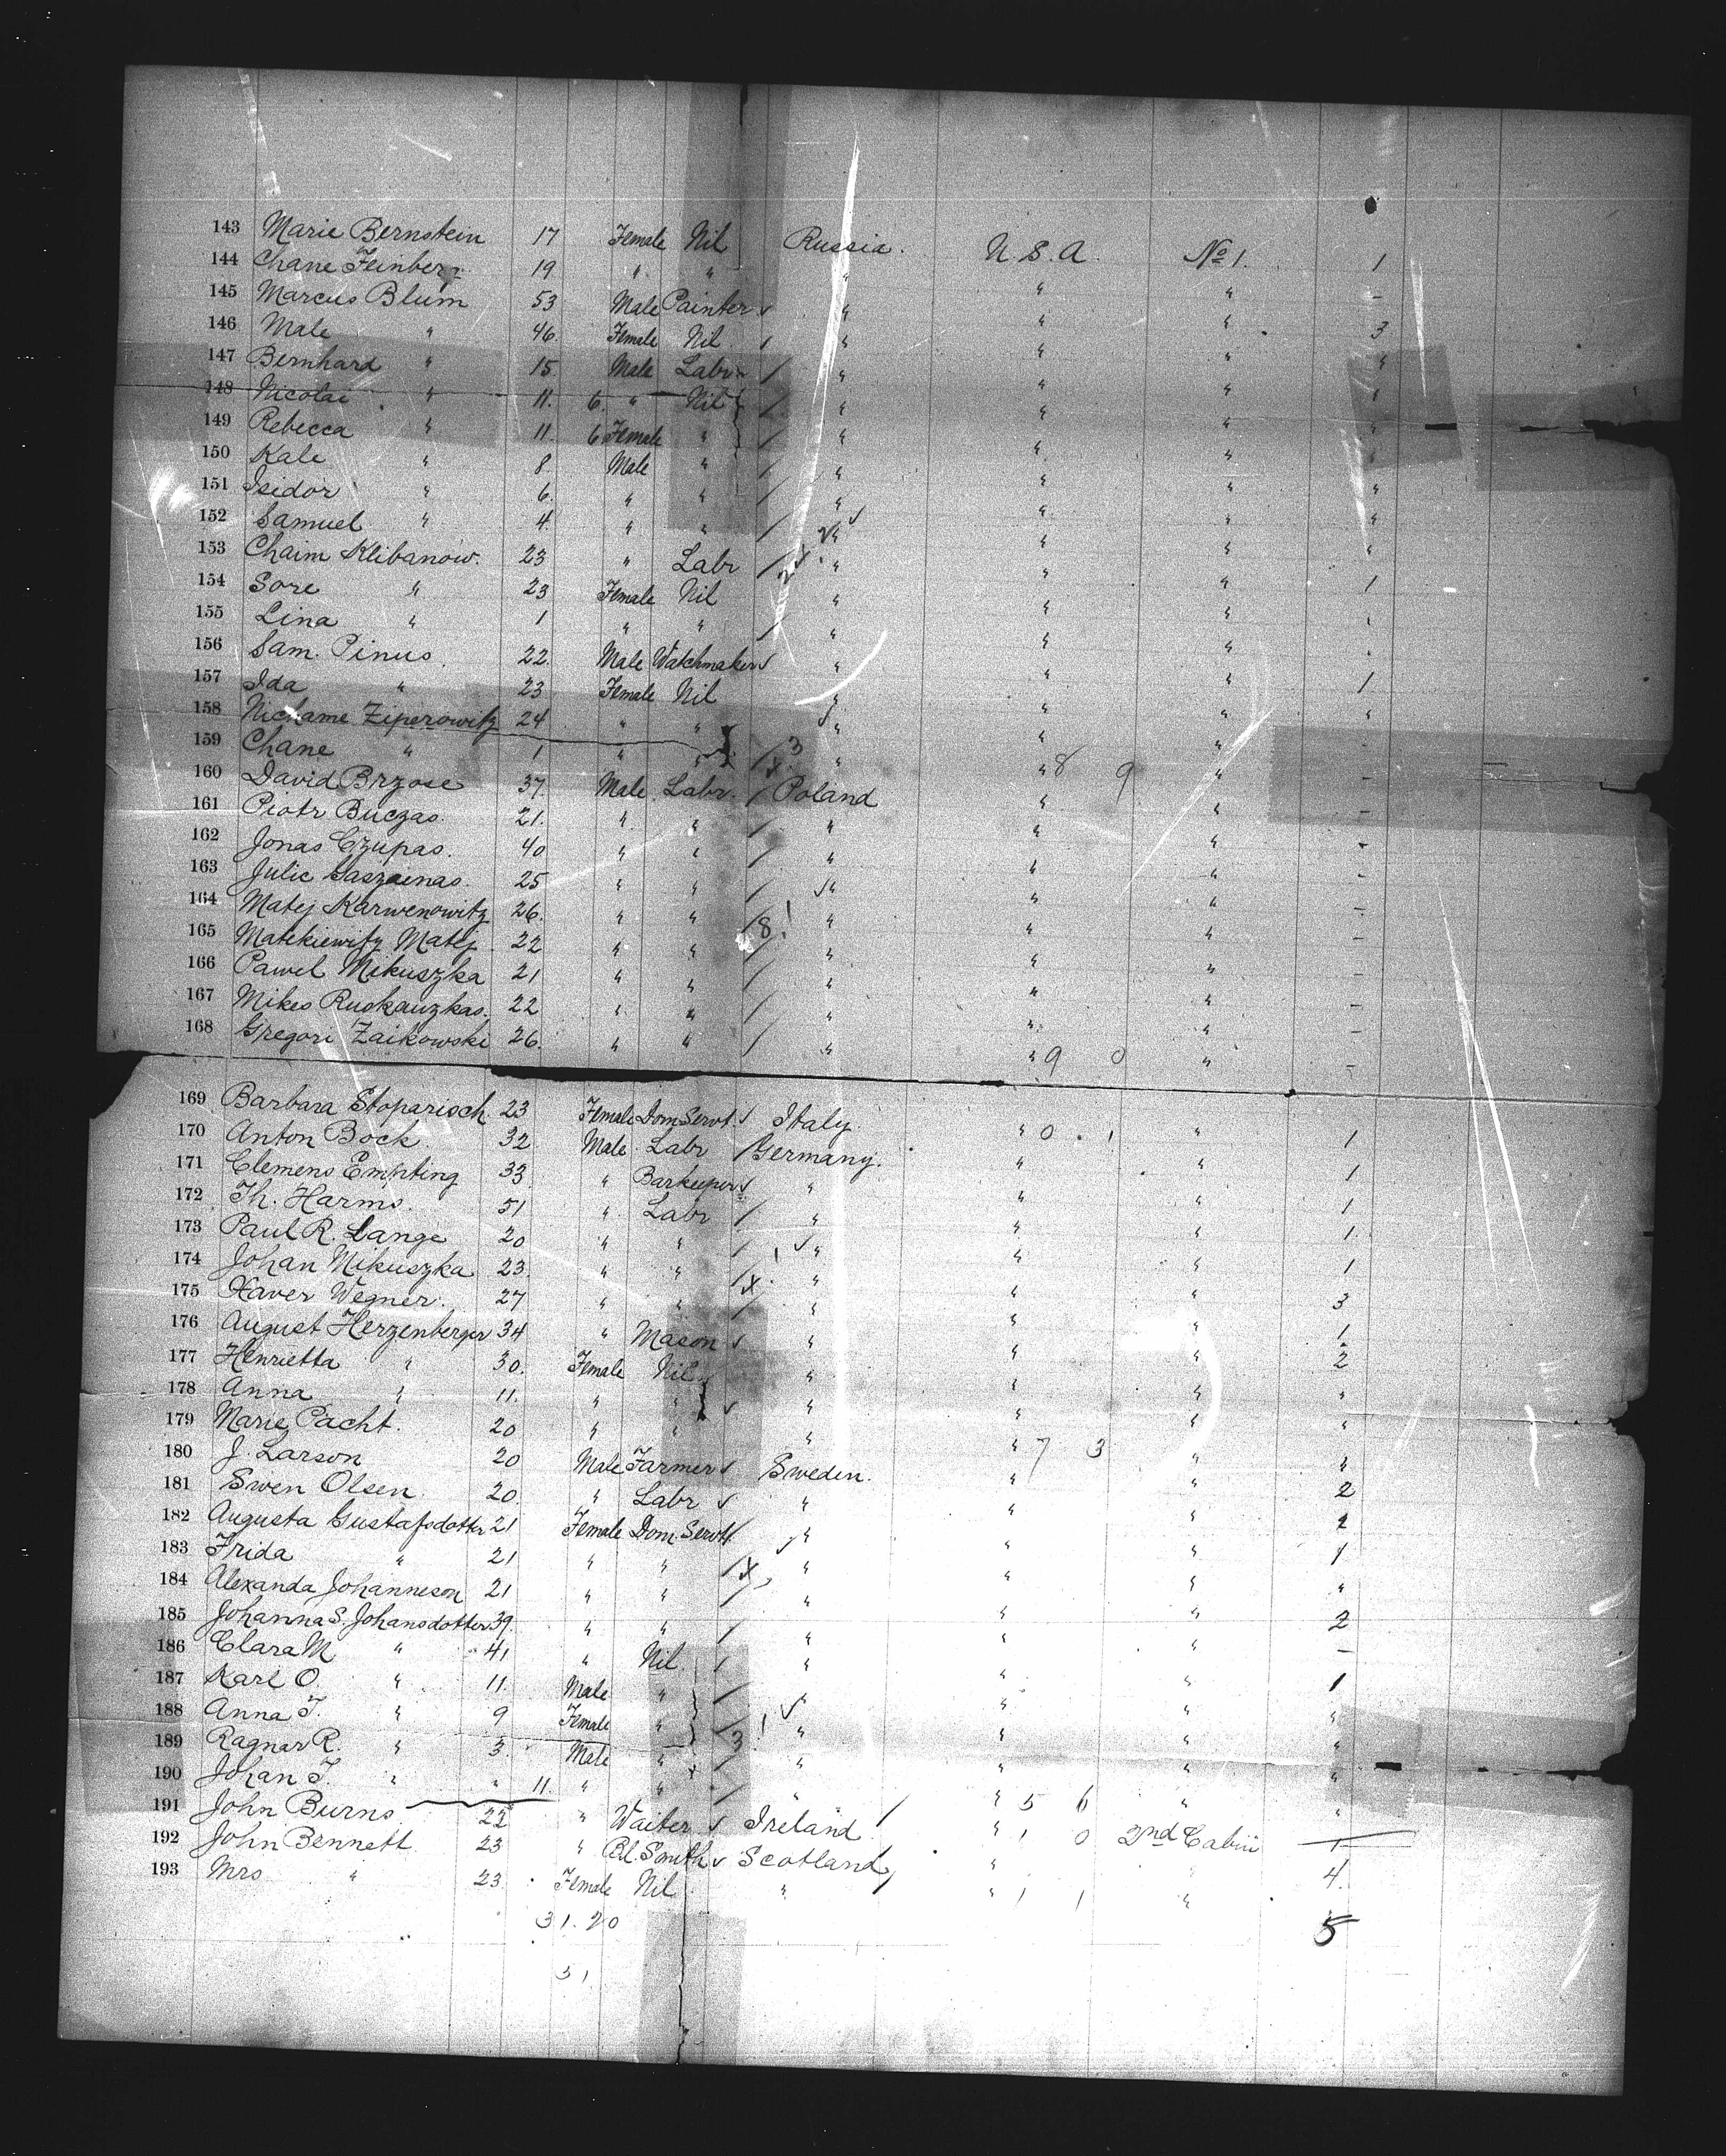 143 Marie Bernstein 17 Female Nil Russia. U.S.A. No 1. 1
144 Chane Feinberg 19 " " " " " -
145 Marcus Blum 53 Male Painter " " " 3
146 Male " 46. Female Nil " " " "
147 Bernhard " 15 Male Labr " " " "
148 Nicolai " 11. 6. " Nil " " " "
149 Rebecca " 11. 6 Female " " " " "
150 Kale " 8. Male " " " " "
151 Isidor " 6. " " " " " "
152 Samuel " 4. " " " " " "
153 Chaim Klibanow. 23 " Labr " " " 1
154 Sore " 23 Female Nil " " " "
155 Lina " 1 " " " " " "
156 Sam. Pinus. 22. Male Watchmaker " " " 1
157 Ida " 23 Female Nil " " " "
158 Nichame Ziperowitz 24 " " " " " -
159 Chane " 1 " " 3 " " 8 9 " -
160 David Brzose 37. Male Labr. Poland " " -
161 Piotr Buczas. 21. " " " " " -
162 Jonas Czupas. 40. " " " " " -
163 Julic Saszaenas. 25 " " " " " -
164 Matej Karwenowitz 26. " " 8! " " " -
165 Matekiewitz Matej 22 " " " " " -
166 Pawel Mikuszka 21 " " " " " -
167 Mikes Ruskauzkas. 22 " " " " " -
168 Gregori Zaikowski 26. " " " " 9 0 " -
169 Barbara Stoparisch 23 Female Dom Servt. Italy. " 0 1 " 1
170 Anton Bock. 32 Male Labr Germany. " " 1
171 Clemens Empting 33 " Barkeeper " " " 1
172 Th. Harms. 51 " Labr " " " 1
173 Paul R. Lange 20 " " " " " 1
174 Johan Mikuszka 23. " " X " " " 3
175 Xaver Wegner. 27 " " " " " 1
176 August Herzenberger 34 " Mason " " " 2
177 Henrietta " 30. Female Nil " " " "
178 Anna " 11. " " " " " "
179 Marie Pacht. 20 " " " " 7 3 " "
180 J. Larson 20 Male Farmer Sweden. " " 2
181 Swen Olsen 20. " Labr " " " 1
182 Augusta Gustafsdotter 21 Female Dom. Servt " " " 1
183 Frida " 21 " " X " " " "
184 Alexanda Johanneson 21 " " " " " 2
185 Johanna S. Johansdotter 39. " " " " " -
186 Clara M " 41 " Nil. " " " 1
187 Karl O. " 11. Male " " " " "
188 Anna T. " 9 Female " " " " "
189 Ragnar R. " 3. Male " 3! " " " "
190 Johan T. " " 11. " " " " 5 6 " "
191 John Burns 22 " Waiter Ireland. " 1 0 2nd Cabin 1
192 John Bennett 23 " Bl. Smith Scotland, " " 4.
193 Mrs " 23 Female Nil " " 1 1 "
31. 20 5
51